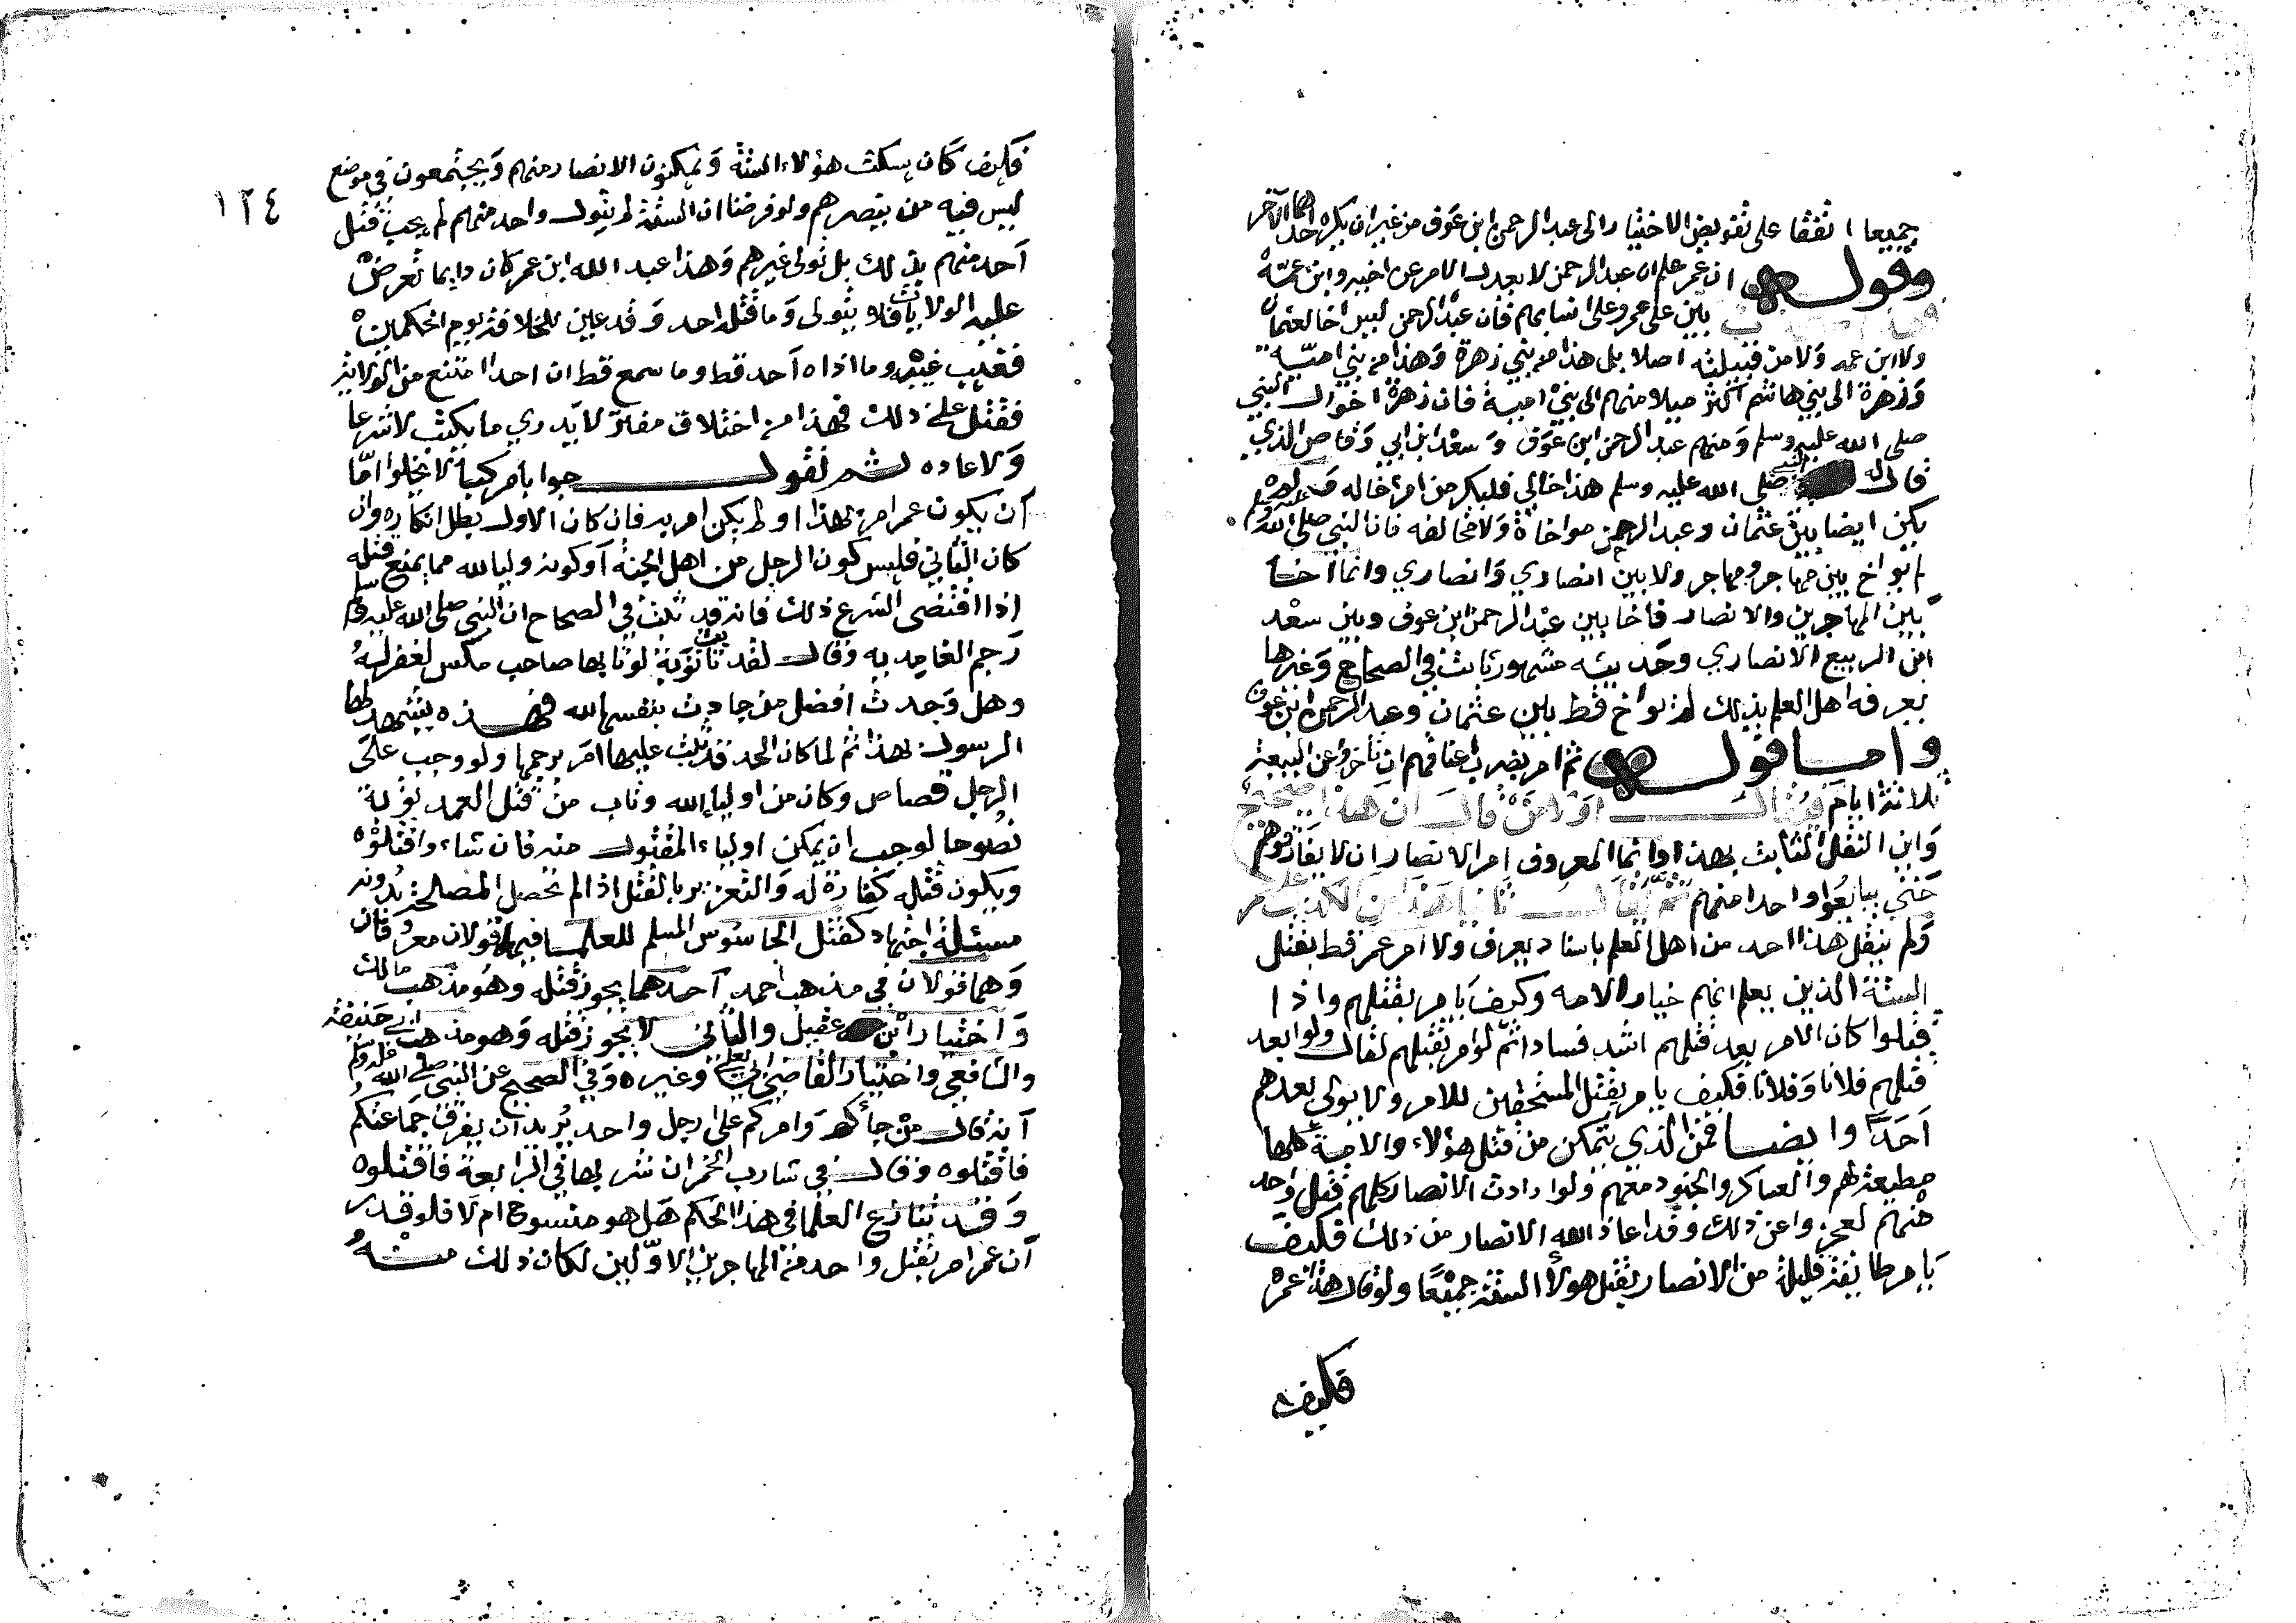 جميعا اتفقا على تفويض الاختيار الى عبد الرحمن ابن عوف من غير ان يكره احدهما الآخر
وقوله ان عمر علم ان عبد الرحمن لا يعدل الامر عن اخيه وابن عمه
بين على عمر وعلى انسابهم فان عبد الرحمن ليس اخا لعثمان
ولا ابن عمه ولا من قبيلته اصلا بل هذا من بني زهرة وهذا من بني امية
وزهرة الى بني هاشم اكثر ميلا منهم الى بني امية فان زهرة اخوال النبي
صلى الله عليه وسلم ومنهم عبد الرحمن ابن عوف وسعد ابن ابي وقاص الذي
قال النبي صلى الله عليه وسلم هذا خالي فليكرمن امرؤ خاله ولم
يكن ايضا بين عثمان وعبد الرحمن مواخاة ولا مخالفه فان النبي صلى الله عليه وسلم
لم يواخ بين مهاجر ومهاجر ولا بين انصاري وانصاري وانما اخا
بين المهاجرين والانصار فاخا بين عبد الرحمن ابن عوف وبين سعد
ابن الربيع الانصاري وحديثه مشهور ثابت في الصحاح وغيرها
يعرفه اهل العلم بذلك لم يواخ قط بين عثمان وعبد الرحمن ابن عوف
واما قوله ثم امر بضرب اعناقهم ان تأخروا عن البيعة
ثلاثة ايام فيقال اولا من قال ان هذا صحيح
واين النقل الثابت بهذا وانما المعروف امر الانصار ان لا يفارقوهم
حتى يبايعوا واحدا منهم ثم يقال ثانيا هذا من الكذب على عمر
ولم ينقل هذا احد من اهل العلم باسناد يعرف ولا امر عمر قط بقتل
الستة الذين يعلم انهم خيار الامه وكيف يامر بقتلهم واذا
قتلوا كان الامر بعد قتلهم اشد فسادا ثم لو امر بقتلهم لقال ولوا بعد
قتلهم فلانا وفلانا فكيف يامر بقتل المستحقين للامر ولا يولي بعدهم
احدا وايضا فمن الذي يتمكن من قتل هؤلاء والامة كلها
مطيعة لهم والعساكر والجنود معهم ولو ارادت الانصار كلهم قتل واحد
منهم لعجزوا عن ذلك وقد اعاذ الله الانصار من ذلك فكيف
يامر طائفة قليلة من الانصار بقتل هولا الستة جميعا ولو قال هذا عمر
فكيف
١٢٤
فكيف كان يسكت هؤلاء الستة ويمكنون الانصار منهم ويجتمعون في موضع
ليس فيه من ينصرهم ولو فرضنا ان الستة لم يتول واحد منهم لم يجب قتل
احد منهم بذلك بل تولى غيرهم وهذا عبد الله ابن عمر كان دايما تعرض
عليه الولايات فلا يتولى وما قتله احد وقد عين للخلافة يوم الحكمين
فتغيب عنه وما اذاه احد قط وما سمع قط ان احدا امتنع من الولاية
فقتل على ذلك فهذا من اختلاق مفتر لا يدري ما يكتب لا شرعا
ولا عاده ثم نقول جوابا مركبا لا يخلوا اما
ان يكون عمر امر بهذا او لم يكن امر به فان كان الاول بطل انكاره وان
كان الثاني فليس كون الرجل من اهل الجنة او كونه وليا لله مما يمنع قتله
اذا اقتضى الشرع ذلك فانه قد ثبت في الصحاح ان النبي صلى الله عليه وسلم
رجم الغامديه وقال لقد تابت توبة لو تابها صاحب مكس لغفر له
وهل وجدت افضل من جادت بنفسها لله فهذه يشهد لها
الرسول بهذا ثم لما كان الحد قد ثبت عليها امر برجمها ولو وجب على
الرجل قصاص وكان من اولياء الله وتاب من قتل العمد توبة
نصوحا لوجب ان يمكن اولياء المقتول منه فان شاءوا قتلوه
ويكون قتله كفارة له والتعزير بالقتل اذا لم تحصل المصلحة بدونه
مسئلة اجتهاد كقتل الجاسوس المسلم للعلما فيه قولان معروفان
وهما قولان في مذهب احمد احدهما يجوز قتله وهو مذهب مالك
واختيار ابن عقيل والثاني لا يجوز قتله وهو مذهب ابي حنيفة
والشافعي واختيار القاضي ابي يعلى وغيره وفي الصحيح عن النبي صلى الله عليه وسلم
انه قال من جاءكم وامركم على رجل واحد يريد ان يفرق جماعتكم
فاقتلوه وقال في شارب الخمر ان شربها في الرابعة فاقتلوه
وقد تنازع العلما في هذا الحكم هل هو منسوخ ام لا فلو قدر
ان عمر امر بقتل واحد من المهاجرين الاولين لكان ذلك منه